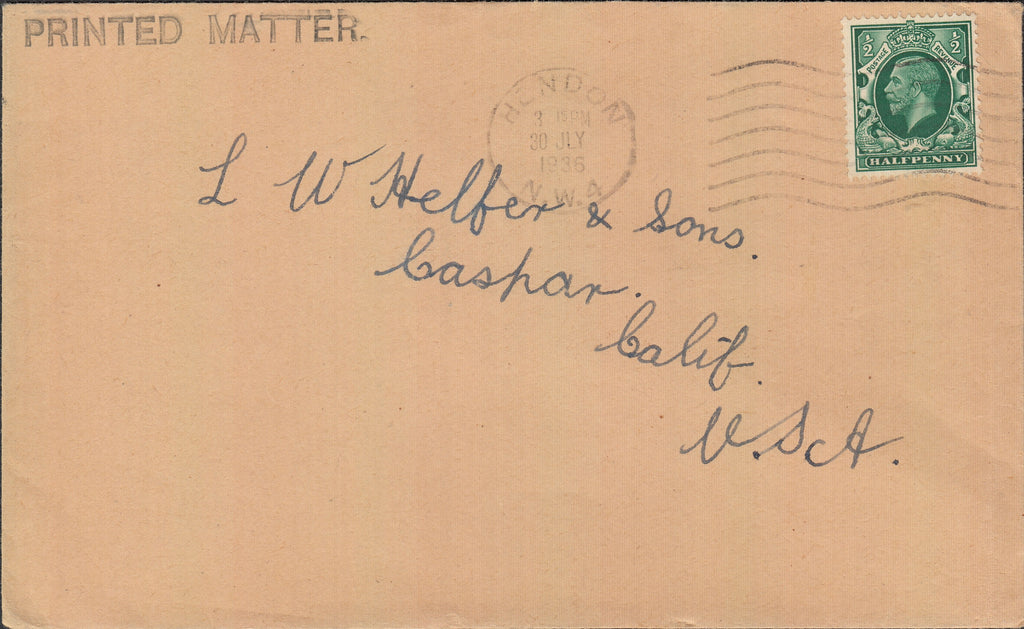 PRINTED MATTER.
½ ½
POSTAGE REVENUE
HALFPENNY
HENDON
3 15 PM
30 JLY
1936
N.W.4
L W Helfer & Sons.
Caspar.
Calif.
U.S.A.